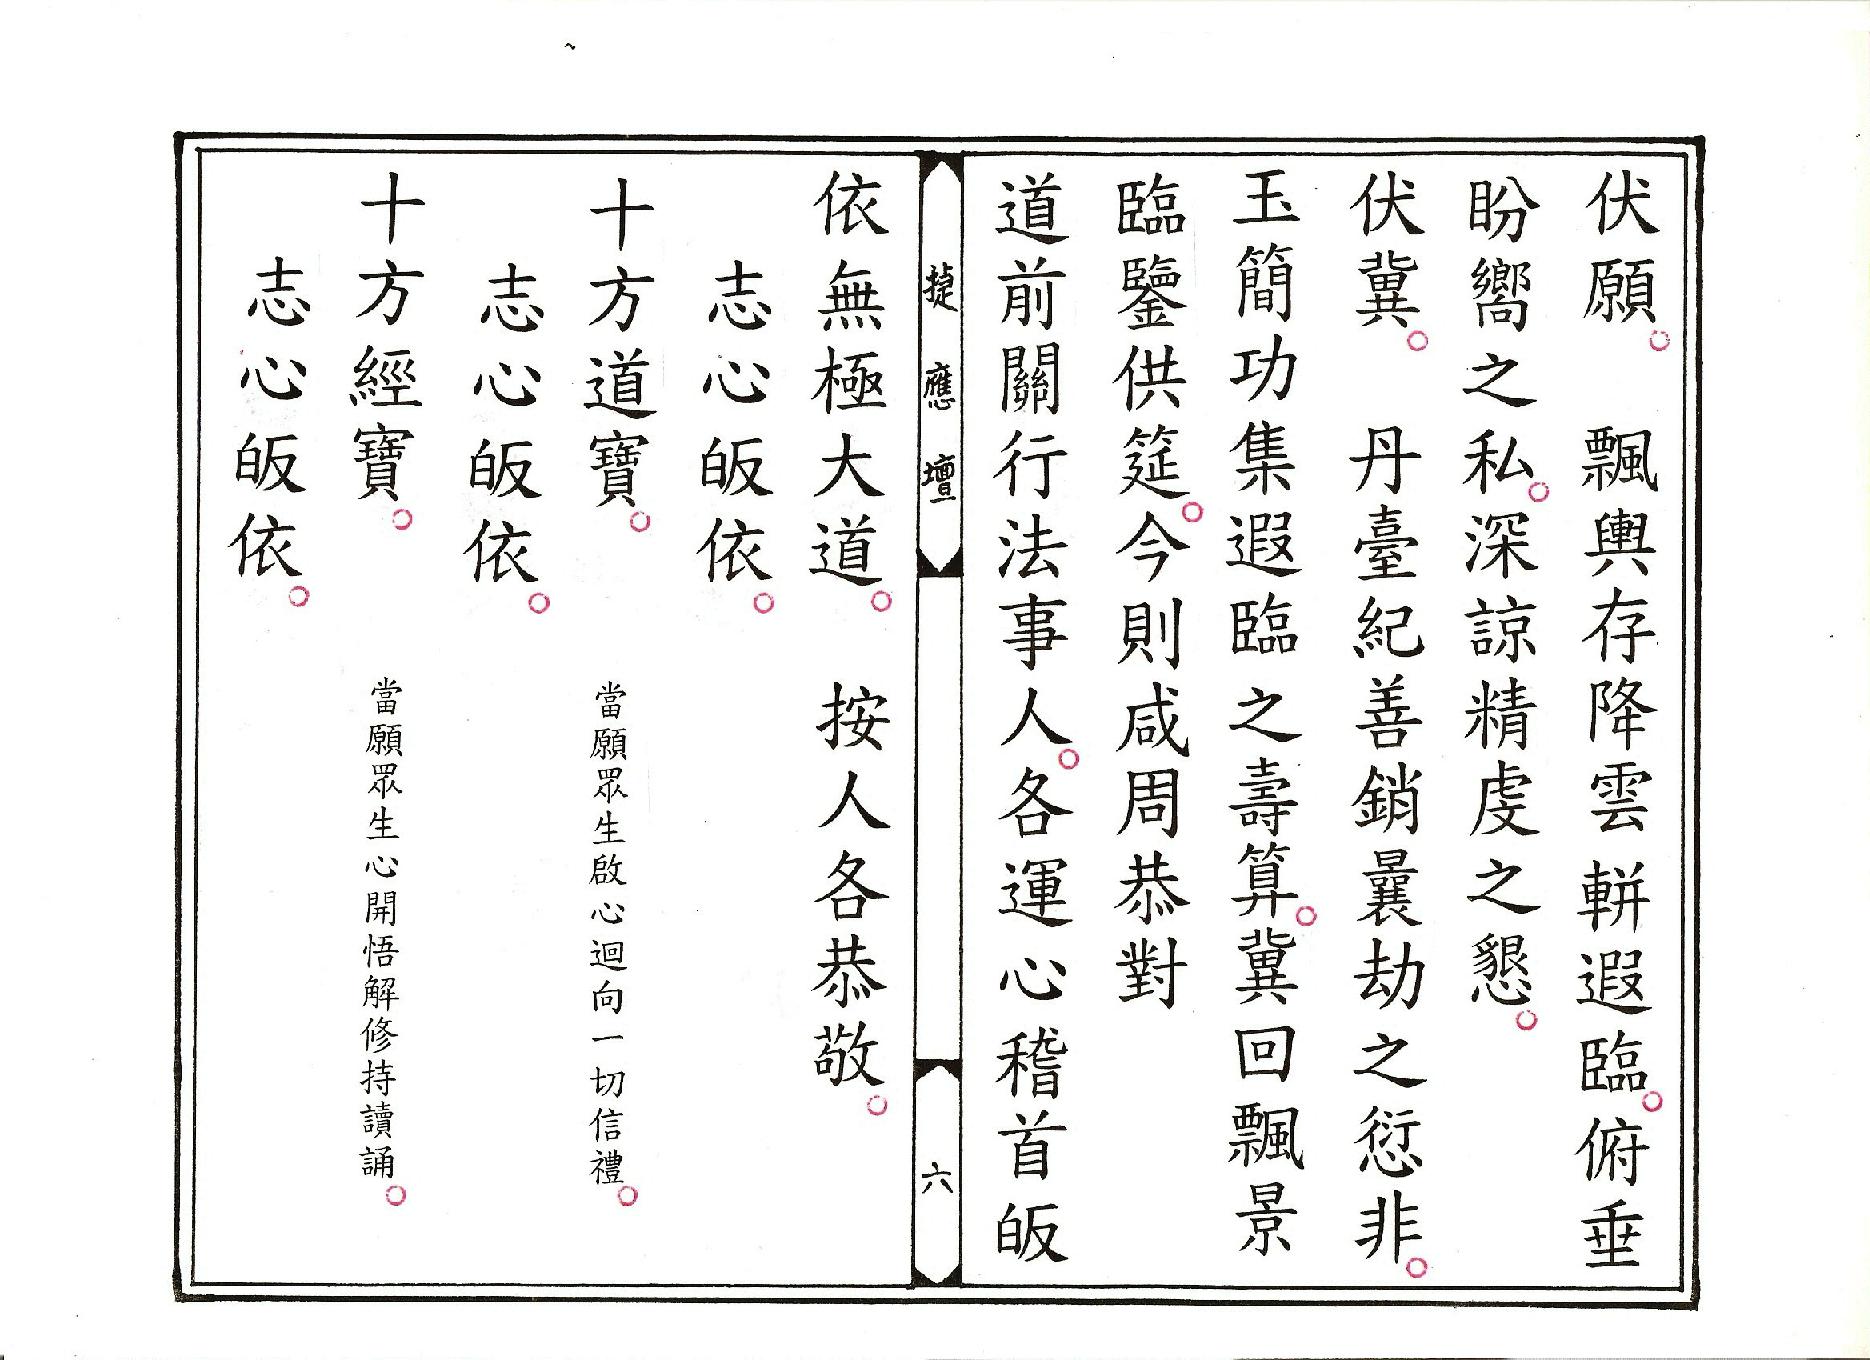 伏願。　飄輿存降雲輧遐臨。俯垂
盼嚮之私。深諒精虔之懇。
伏冀。　丹臺紀善銷曩劫之愆非。
玉簡功集遐臨之壽算。冀回飄景
臨鑒供筵。今則咸周恭對
道前關行法事人。各運心稽首皈
㨗應壇
六
依無極大道。　按人各恭敬。
志心皈依。
十方道寶。　當願眾生啟心迴向一切信禮。
志心皈依。
十方經寶。　當願眾生心開悟解修持讀誦。
志心皈依。